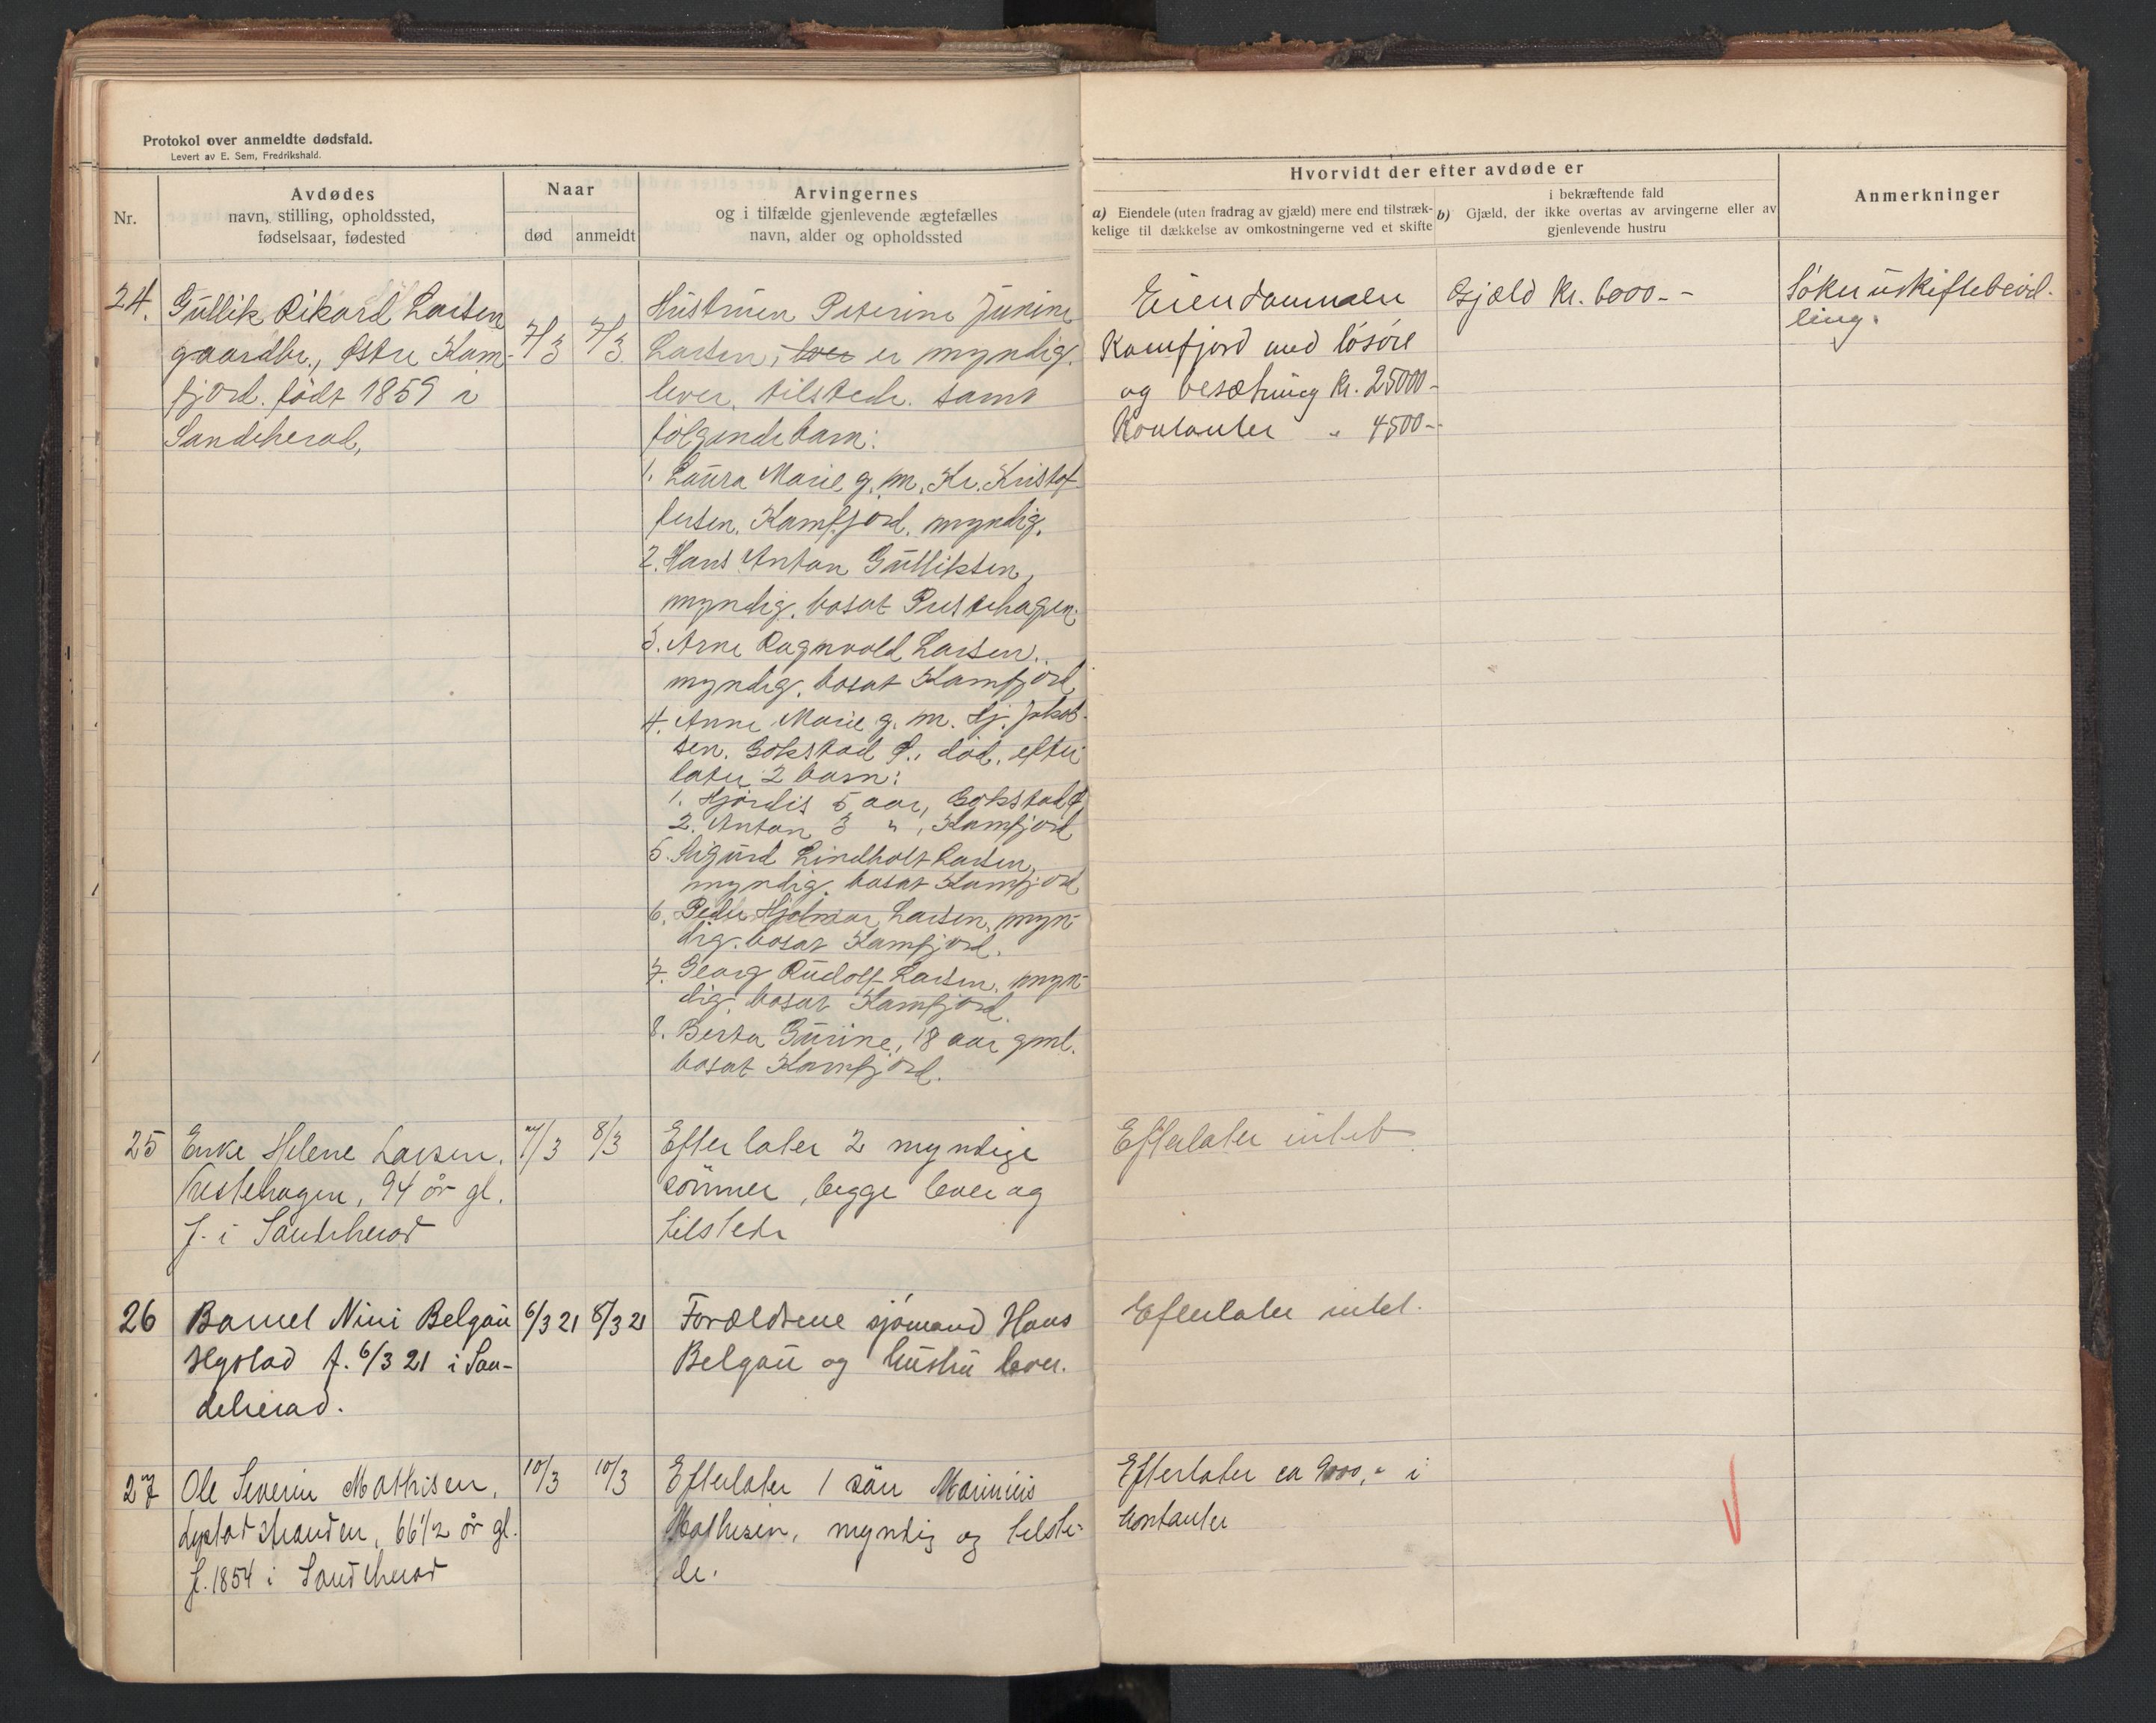 Protokol over anmeldte dødsfald.
Levert av E. Sem, Fredrikshald.
Nr.
Avdødes
navn, stilling, opholdssted,
fødselsaar, fødested
Naar
død
anmeldt
Arvingernes
og i tilfælde gjenlevende ægtefælles
navn, alder og opholdssted
Hvorvidt der efter avdøde er
a) Eiendele (uten fradrag av gjæld) mere end tilstræk-
kelige til dækkelse av omkostningerne ved et skifte
i bekræftende fald
b) Gjæld, der ikke overtas av arvingerne eller av
gjenlevende hustru
Anmerkninger
24.
Gullik Rikard Larsen
gaardbr., Østre Kam-
fjord. født 1859 i
Sandeherad,
7/3
7/3
Hustruen Peterine Junine
Larsen, lever er myndig.
lever. tilstede. samt
følgende barn:
1. Laura Marie g. m. Kr. Kristof
fersen. Kamfjord. myndig.
2. Hans Anton Gulliksen,
myndig. bosat Prestehagen.
3. Arne Ragnvald Larsen..
myndig. bosat Kamfjord
4. Anne Marie g. m. Hj. Jakob-
sen. Gokstad P., død. efter
later 2 barn:
1. Hjørdis 5 aar, Gokstad P.
2. Anton 3 " , Kamfjord
5. Sigurd Lindholt Larsen,
myndig. bosat Kamfjord
6. Peder Hjalmar Larsen, myn-
dig. bosat Kamfjord.
7. Georg Rudolf Larsen. myn-
dig. bosat Kamfjord.
8. Berta Gurine, 18 aar gml.
bosat Kamfjord.
Eiendommen
Kamfjord med løsøre
og besætning Kr. 25000-
Kontanter " 4500--
Gjæld Kr. 6000.--
Søker uskiftebevil-
ling.
25
Enke Helene Larsen.
Prestehagen, 94 år gl.
f. i Sandeherad
7/3
8/3
Efterlater 2 myndige
sønner, begge lever og
tilstede
Efterlater intet
26
Barnet Nini Belgau
Nystad f. 6/3 21 i San-
deherad.
6/3 21
8/3 21
Forældrene sjømand Hans
Belgau og hustru lever.
Efterlater intet.
27
Ole Severin Mathisen,
Lystadstranden, 66 1/2 år gl.
f. 1854 i Sandeherad
10/3
10/3
Efterlater 1 sön Marinius
Mathisen, myndig og tilste-
de.
Efterlater ca 9000,- i
kontanter